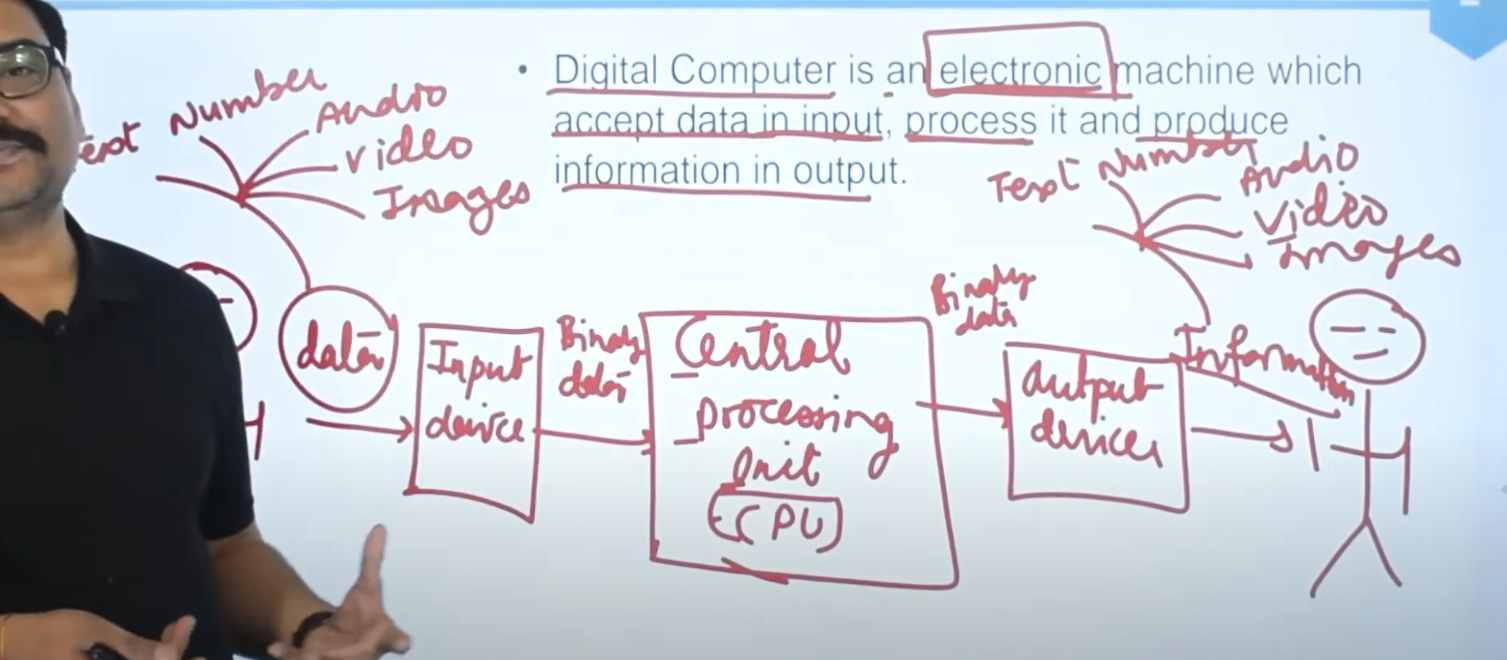 • Digital Computer is an electronic machine which
accept data in input, process it and produce
information in output.
Text Number
Audio
Video
Images
data
Input
device
Binary
data
Central
processing
Unit
(CPU)
Binary
data
output
devices
Text Number
Audio
Video
Images
Information